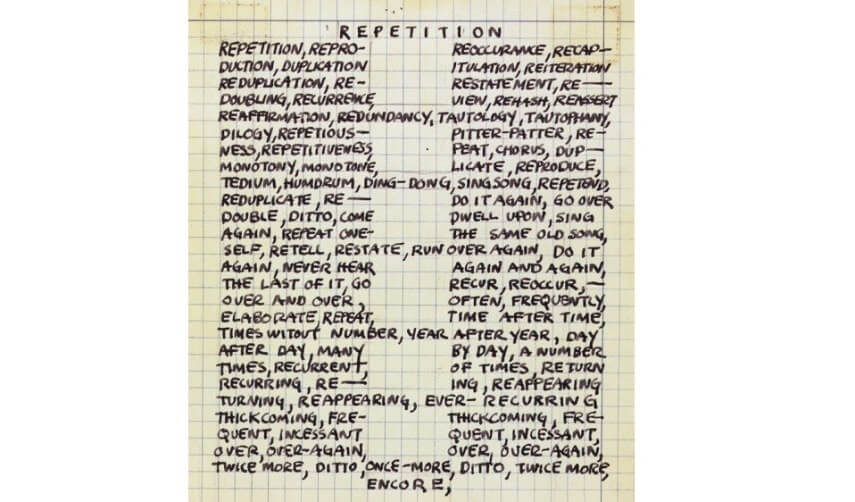 REPETITION
REPETITION, REPRO-
DUCTION, DUPLICATION
REDUPLICATION, RE-
DOUBLING, RECURRENCE,
REOCCURANCE, RECAP-
ITULATION, REITERATION
RESTATEMENT, RE-
VIEW, REHASH, REASSERT
REAFFIRMATION, REDUNDANCY, TAUTOLOGY, TAUTOPHANY,
DILOGY, REPETIOUS-
NESS, REPETITIVENESS,
MONOTONY, MONOTONE,
PITTER-PATTER, RE-
PEAT, CHORUS, DUP-
LICATE, REPRODUCE,
TEDIUM, HUMDRUM, DING-DONG, SINGSONG, REPETEND,
REDUPLICATE, RE-
DOUBLE, DITTO, COME
AGAIN, REPEAT ONE-
DO IT AGAIN, GO OVER
DWELL UPON, SING
THE SAME OLD SONG,
SELF, RETELL, RESTATE, RUN OVER AGAIN, DO IT
AGAIN, NEVER HEAR
THE LAST OF IT, GO
OVER AND OVER,
ELABORATE, REPEAT,
AGAIN AND AGAIN,
RECUR, REOCCUR,-
OFTEN, FREQUENTLY,
TIME AFTER TIME,
TIMES WITOUT NUMBER, YEAR AFTER YEAR, DAY
AFTER DAY, MANY
TIMES, RECURRENT,
RECURRING, RE-
BY DAY, A NUMBER
OF TIMES, RETURN
ING, REAPPEARING
TURNING, REAPPEARING, EVER-RECURRING
THICKCOMING, FRE-
QUENT, INCESSANT
OVER, OVER-AGAIN,
THICKCOMING, FRE-
QUENT, INCESSANT,
OVER, OVER-AGAIN,
TWICE MORE, DITTO, ONCE-MORE, DITTO, TWICE MORE,
ENCORE,